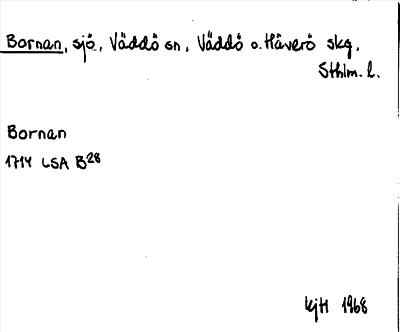 Bornan, sjö, Väddö sn, Väddö o. Häverö skg,
Sthlm. l.
Bornan
1714 LSA B28
KjH 1968